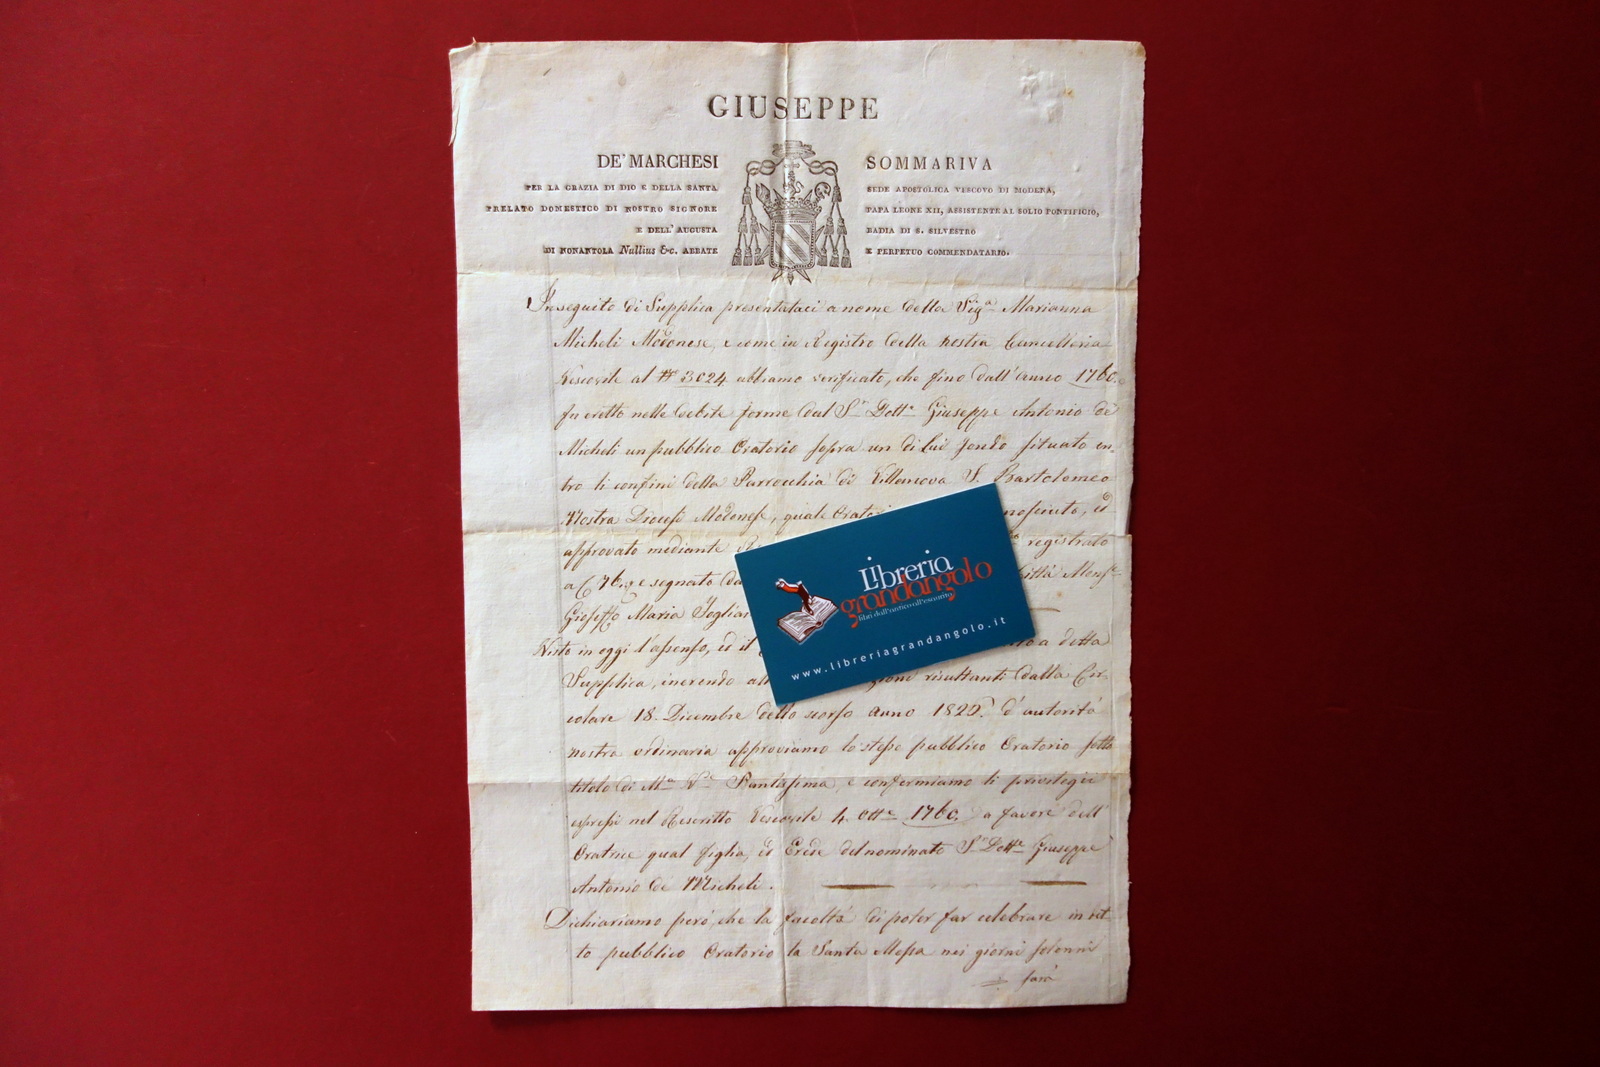 GIUSEPPE
DE' MARCHESI SOMMARIVA
PER LA GRAZIA DI DIO E DELLA SANTA SEDE APOSTOLICA VESCOVO DI MODENA,
PRELATO DOMESTICO DI NOSTRO SIGNORE PAPA LEONE XII, ASSISTENTE AL SOLIO PONTIFICIO,
E DELL' AUGUSTA BADIA DI S. SILVESTRO
DI NONANTOLA Nullius &c. ABBATE E PERPETUO COMMENDATARIO.
Inseguito di Supplica presentataci a nome della Sigª Marianna
Micheli Modonese, e come in Registro della nostra Cancelleria
Vescovile al N° 3024 abbiamo verificato, che fino dall'Anno 1760.
fu eretto nelle debite forme dal Sr Dotte Giuseppe Antonio de
Micheli un pubblico Oratorio sopra un di lui fondo situato en-
tro li confini della Parrocchia di Villanova S. Bartolomeo
Nostra Diocesi Modonese, quale Orato nosciuto, ed
approvato mediante registrato
a C 76. e segnato da Città Monse
Gioseffo Maria Foglian
Visto in oggi l'assenso, ed il a detta
Supplica, inerendo all gione risultanti dalla Cir-
colare 18. Dicembre dello scorso anno 1825. d'autorità
nostra ordinaria approviamo lo stesso pubblico Oratorio sotto
titolo di Mª Ve Santissima, e confermiamo li privilegi
espressi nel Rescritto Vescovile 4. otte 1760. a favore dell'
Oratrice qual figlia, ed Erede del nominato Sr Dotte Giuseppe
Antonio de Micheli.
Dichiariamo però, che la facoltà di poter far celebrare in det-
to pubblico Oratorio la Santa Messa nei giorni solenni
sarà
Libreria
grandangolo
libri dall'antico all'esaurito
www.libreriagrandangolo.it